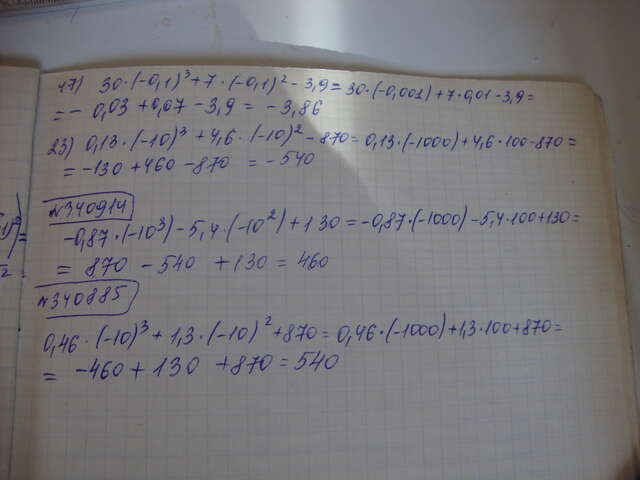 47) 30·(-0,1)³+7·(-0,1)²-3,9=30·(-0,001)+7·0,01-3,9=
=-0,03+0,07-3,9=-3,86
23) 0,13·(-10)³+4,6·(-10)²-870=0,13·(-1000)+4,6·100-870=
=-130+460-870=-540
№340914
-0,87·(-10³)-5,4·(-10²)+130=-0,87·(-1000)-5,4·100+130=
=870-540+130=460
№340885
0,46·(-10)³+1,3·(-10)²+870=0,46·(-1000)+1,3·100+870=
=-460+130+870=540